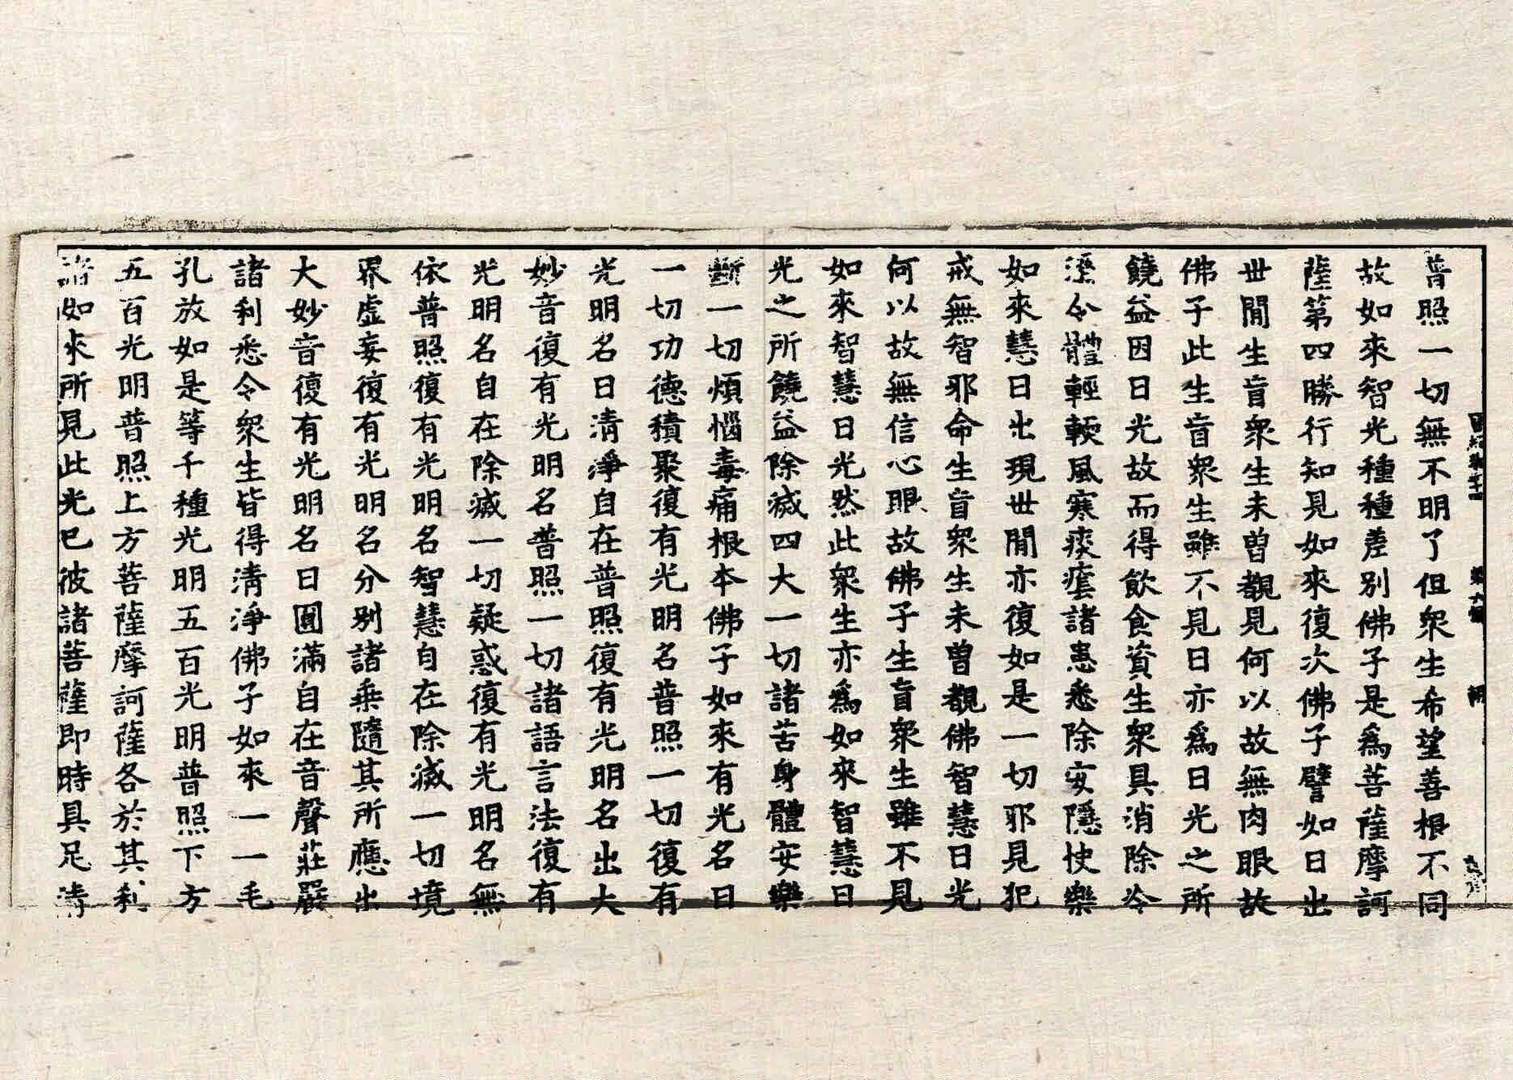 普照一切無不明了但衆生希望善根不同
故如來智光種種差別佛子是爲菩薩摩訶
薩第四勝行知見如來復次佛子譬如日出
世閒生盲衆生未曽覩見何以故無肉眼故
佛子此生盲衆生雖不見日亦爲日光之所
饒益因日光故而得飲食資生衆具消除冷
濕令體輕軟風寒痰癊諸患悉除安隱快樂
如來慧日出現世閒亦復如是一切邪見犯
戒無智邪命生盲衆生未曽覩佛智慧日光
何以故無信心眼故佛子生盲衆生雖不見
如來智慧日光然此衆生亦爲如來智慧日
光之所饒益除滅四大一切諸苦身體安樂
斷一切煩惱毒痛根本佛子如來有光名曰
一切功德積聚復有光明名普照一切復有
光明名曰清淨自在普照復有光明名出大
妙音復有光明名普照一切諸語言法復有
光明名自在除滅一切疑惑復有光明名無
依普照復有光明名智慧自在除滅一切境
界虛妄復有光明名分別諸乘隨其所應出
大妙音復有光明名曰圓滿自在音聲莊嚴
諸利悉令衆生皆得清淨佛子如來一一毛
孔放如是等千種光明五百光明普照下方
五百光明普照上方菩薩摩訶薩各於其利
諸如來所見此光已彼諸菩薩即時具足清